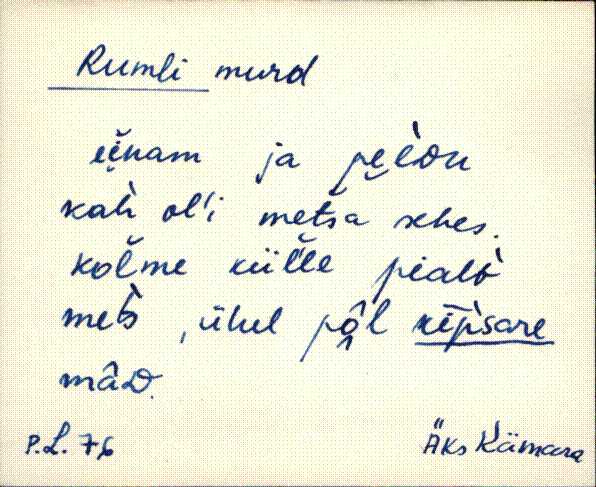 Rumli murd
eìnam ja pèldu
kah ol'i metša sehes.
kolme külle pealt
mets, ühel pôl kīpsare
mâD.
P.L. 76
Äks Kämara